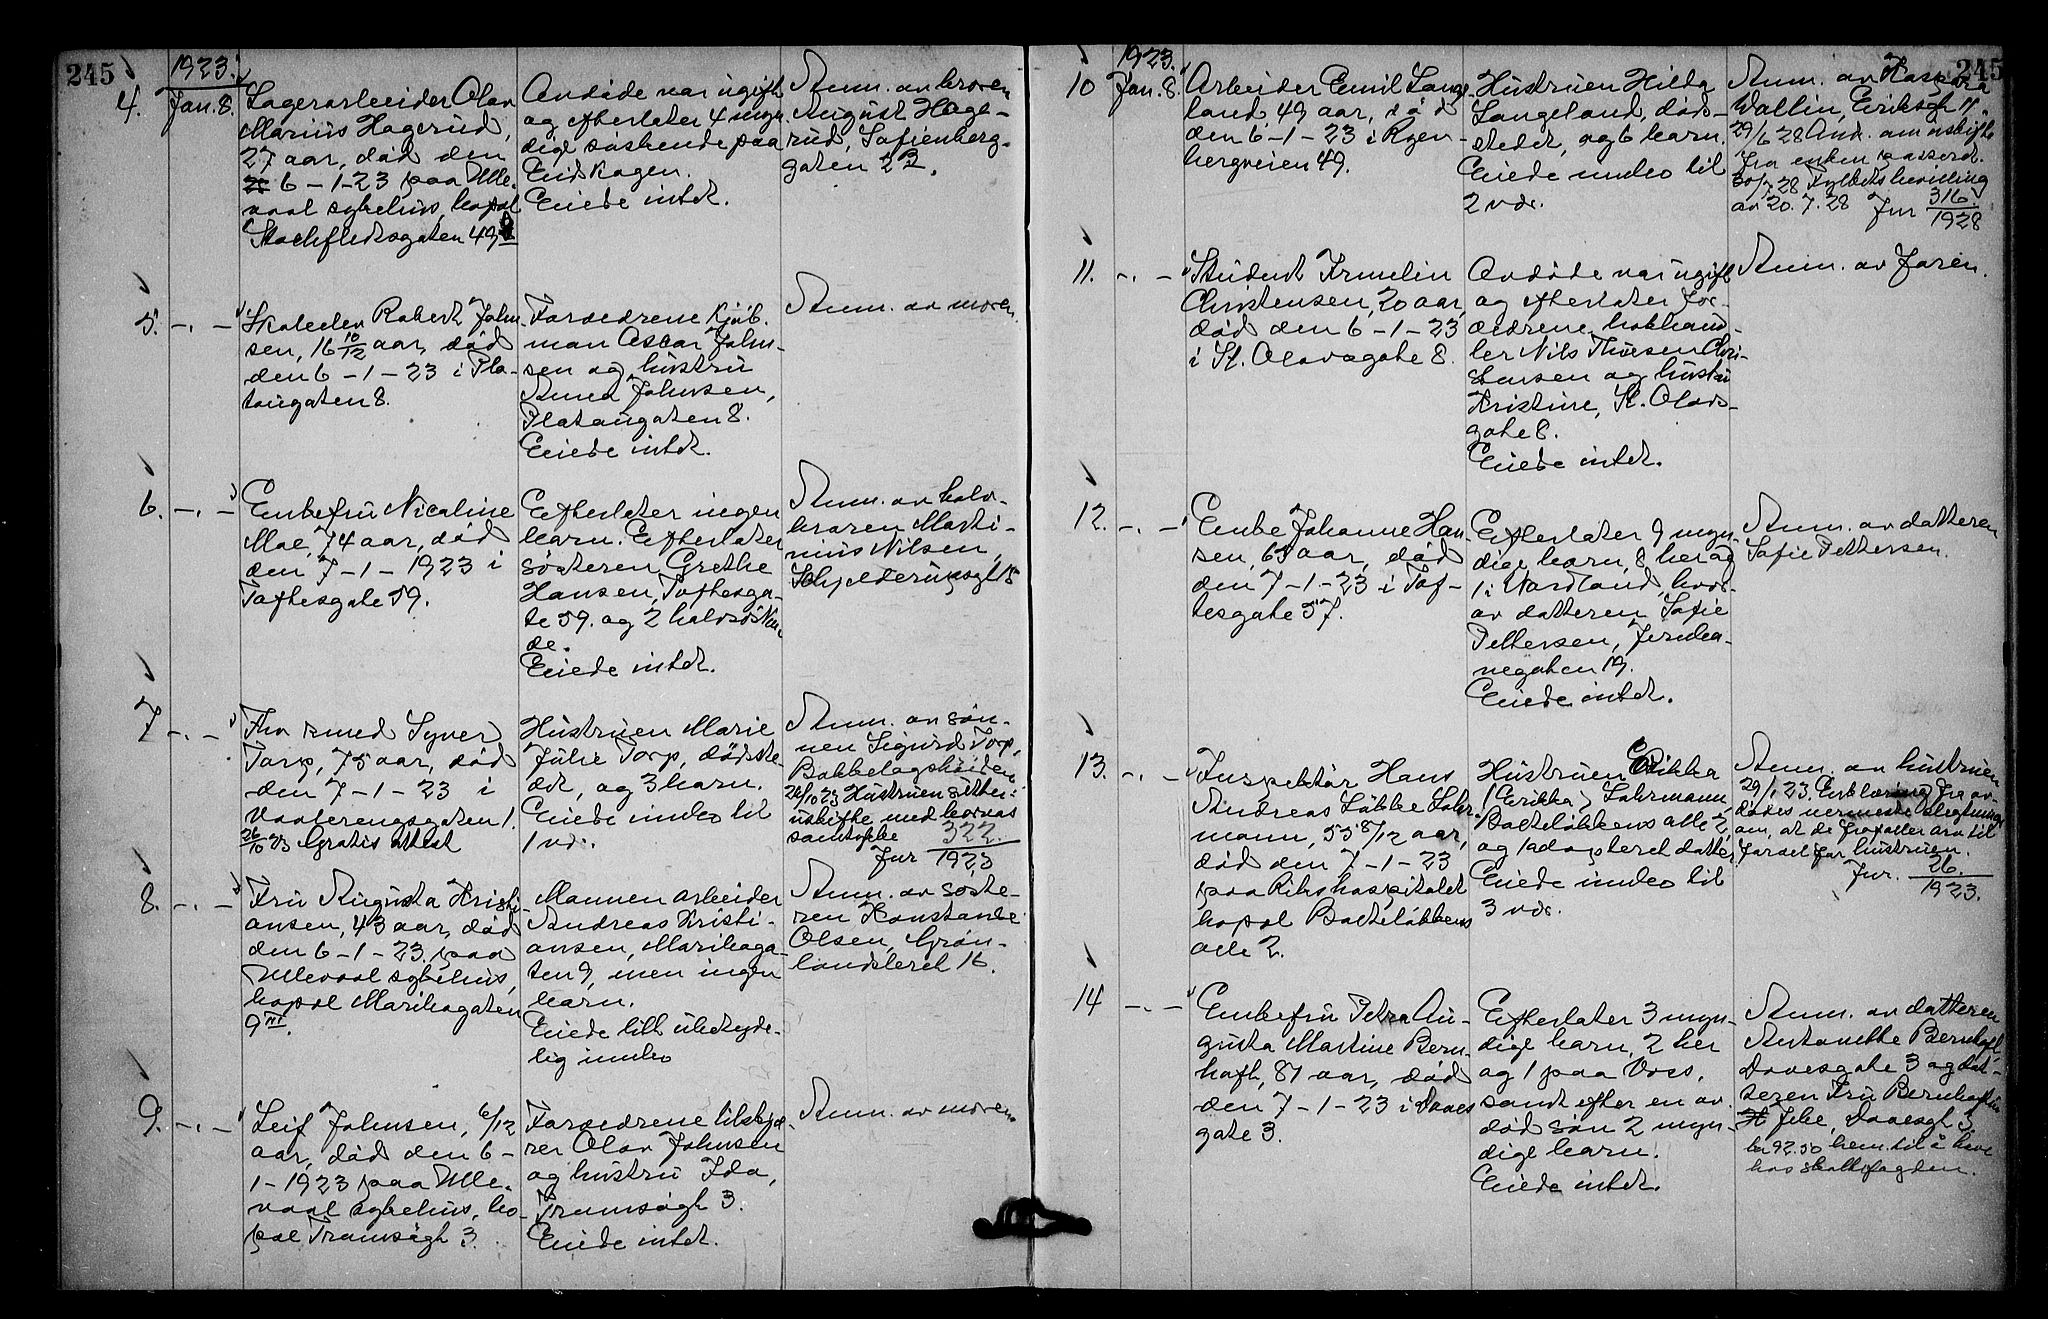 245
1923.
4.
Jan. 8.
Lagerarbeider Olav
Marius Hagerud,
27 aar, død den
6-1-23 paa Ulle-
vaal sykehus, bopæl
Stockfletsgaten 49
Avdøde var ugift
og efterlater 4 myn-
dige søskende paa
Eidskogen.
Eiede intet.
Anm. av broren
August Hage-
rud, Sofienberg-
gaten 2 B.
5. -.-
Skoleelev Robert John-
sen, 16 10/12 aar, død
den 6-1-23 i Pla-
tougaten 8.
Forældrene kjøb-
man Oscar John-
sen og hustru
Anna Johnsen,
Platougaten 8.
Eiede intet.
Anm. av moren.
6. -.-
Enkefru Nicoline
Moe, 74 aar, død
den 7-1-1923 i
Toftesgate 59.
Efterlater ingen
barn. Efterlater
søsteren Grethe
Hansen, Toftesga-
te 59. og 2 halvsøsken-
de.
Eiede intet.
Anm. av halv-
broren Marti-
nius Nilsen,
Schjelderupsgt 15
7 -.-
Fhv smed Syver
Torp, 75 aar, død
den 7-1-23 i
Vaalerengsgaten 1.
26/10 23 Gratis attest
Hustruen Marie
Julie Torp, dødste-
det, og 3 barn.
Eiede indbo til
1 vdr.
Anm. av søn-
nen Sigurd Torp,
Bækkelagshøiden
26/10 23 Hustruen sitter i
uskifte med loovens
samtykke
Jnr 322/1923
8. -.-
Fru Augusta Kristi-
ansen, 43 aar, død
den 6-1-23. paa
Ullevaal sykehus,
bopæl Maribogaten
9 III.
Mannen arbeider
Andreas Kristi-
ansen, Mariboga-
ten 9, men ingen
barn.
Eiede litt ubetyde-
lig indbo
Anm. av søste-
ren Konstanse
Olsen, Grøn-
landsleret 16.
9. -.-
Leif Johnsen, 6/12
aar, død den 6-
1-1923 paa Ulle-
vaal sykehus, bo-
pæl Tromsøgt 3.
Forældrene
Olav Johnsen
og hustru Ida,
Tromsøgt 3.
Eiede intet.
Anm. av moren
245
1923.
10
Jan. 8.
Arbeider Emil Lange-
land, 49 aar, død
den 6-1-23 i Ryen-
bergveien 49.
Hustruen Hilda
Langeland, døds-
stedet, og 6 barn.
Eiede indbo til
2 vdr.
Anm. av
Wallin, Eriksgt 17
29/6 28 Ans. om uskifte
fra enken passert.
30/7 28 Fylkets bevilling
av 20.7.28 Jnr 316/1928
11. -.-
Student Frmelin
Christensen, 20 aar,
død den 6-1-23
i St. Olavsgate 8.
Avdøde var ugift
og efterlater for-
ældrene, bokhand-
ler Nils Thuesen Chri-
stensen og hustru
Kristine, St. Olavs-
gate 8.
Eiede intet.
Anm. av faren.
12. -.-
Enke Johanne Han-
sen, 65 aar, død
den 7-1-23 i Tof-
tesgate 57.
Efterlater 9 myn-
dige barn, 8 her og
1 i Nordland, hvor-
av datteren Sofie
Pettersen, Jernba-
negaten 19.
Eiede intet.
Anm. av datteren
Sofie Pettersen.
13. -.-
Inspektør Hans
Andreas Løkke Lohr-
mann, 55 8/12 aar,
død den 7-1-23
paa Rikshospitalet
bopæl Balteløkkens
alle 2.
Hustruen Erikka
(Erikka) Lohrmann,
Balteløkkens alle 2,
og 1 adopteret datter
Eiede indbo til
3 vdr.
Anm. av hustruen
29/1 23. Erklæring fra av-
dødes nærmeste slegtninge
om, at de frafaller arv til
fordel for hustruen.
Jnr. 26./1923.
14 -.-
Enkefru Petra Au-
gusta Martine Bern-
hoft, 81 aar, død
den 7-1-23 i Daaes
gate 3.
Efterlater 3 myn-
dige barn, 2 her
og 1 paa Voss,
samt efter en av-
død søn 2 myn-
dige barn.
Eiede intet.
Anm. av datteren
Antonette Bernhoft
Daaesgate 3 og dat-
teren Fru
Daaesgt 3
kr 92.50 hen. til å heve
hos skattefogden.